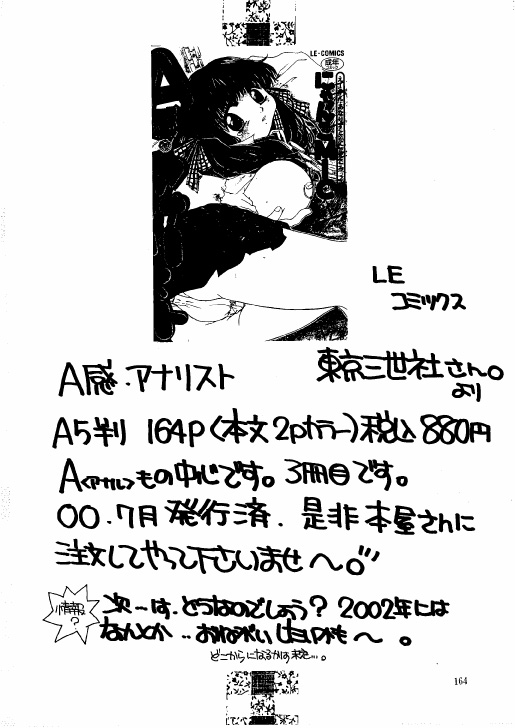 LE-COMICS
成年
LE
コミックス
A感・アナリスト
東京三世社さん。
より
A5判 164P(本文2Pカラー)税込880円
A<アナル>もの中心です。3冊目です。
00.7月 発行済. 是非本屋さんに
注文してやって下さいませ〜。
情報?
次一は、どうなのでしょう? 2002年には
なんとか
〜。
どこからになるかは
164